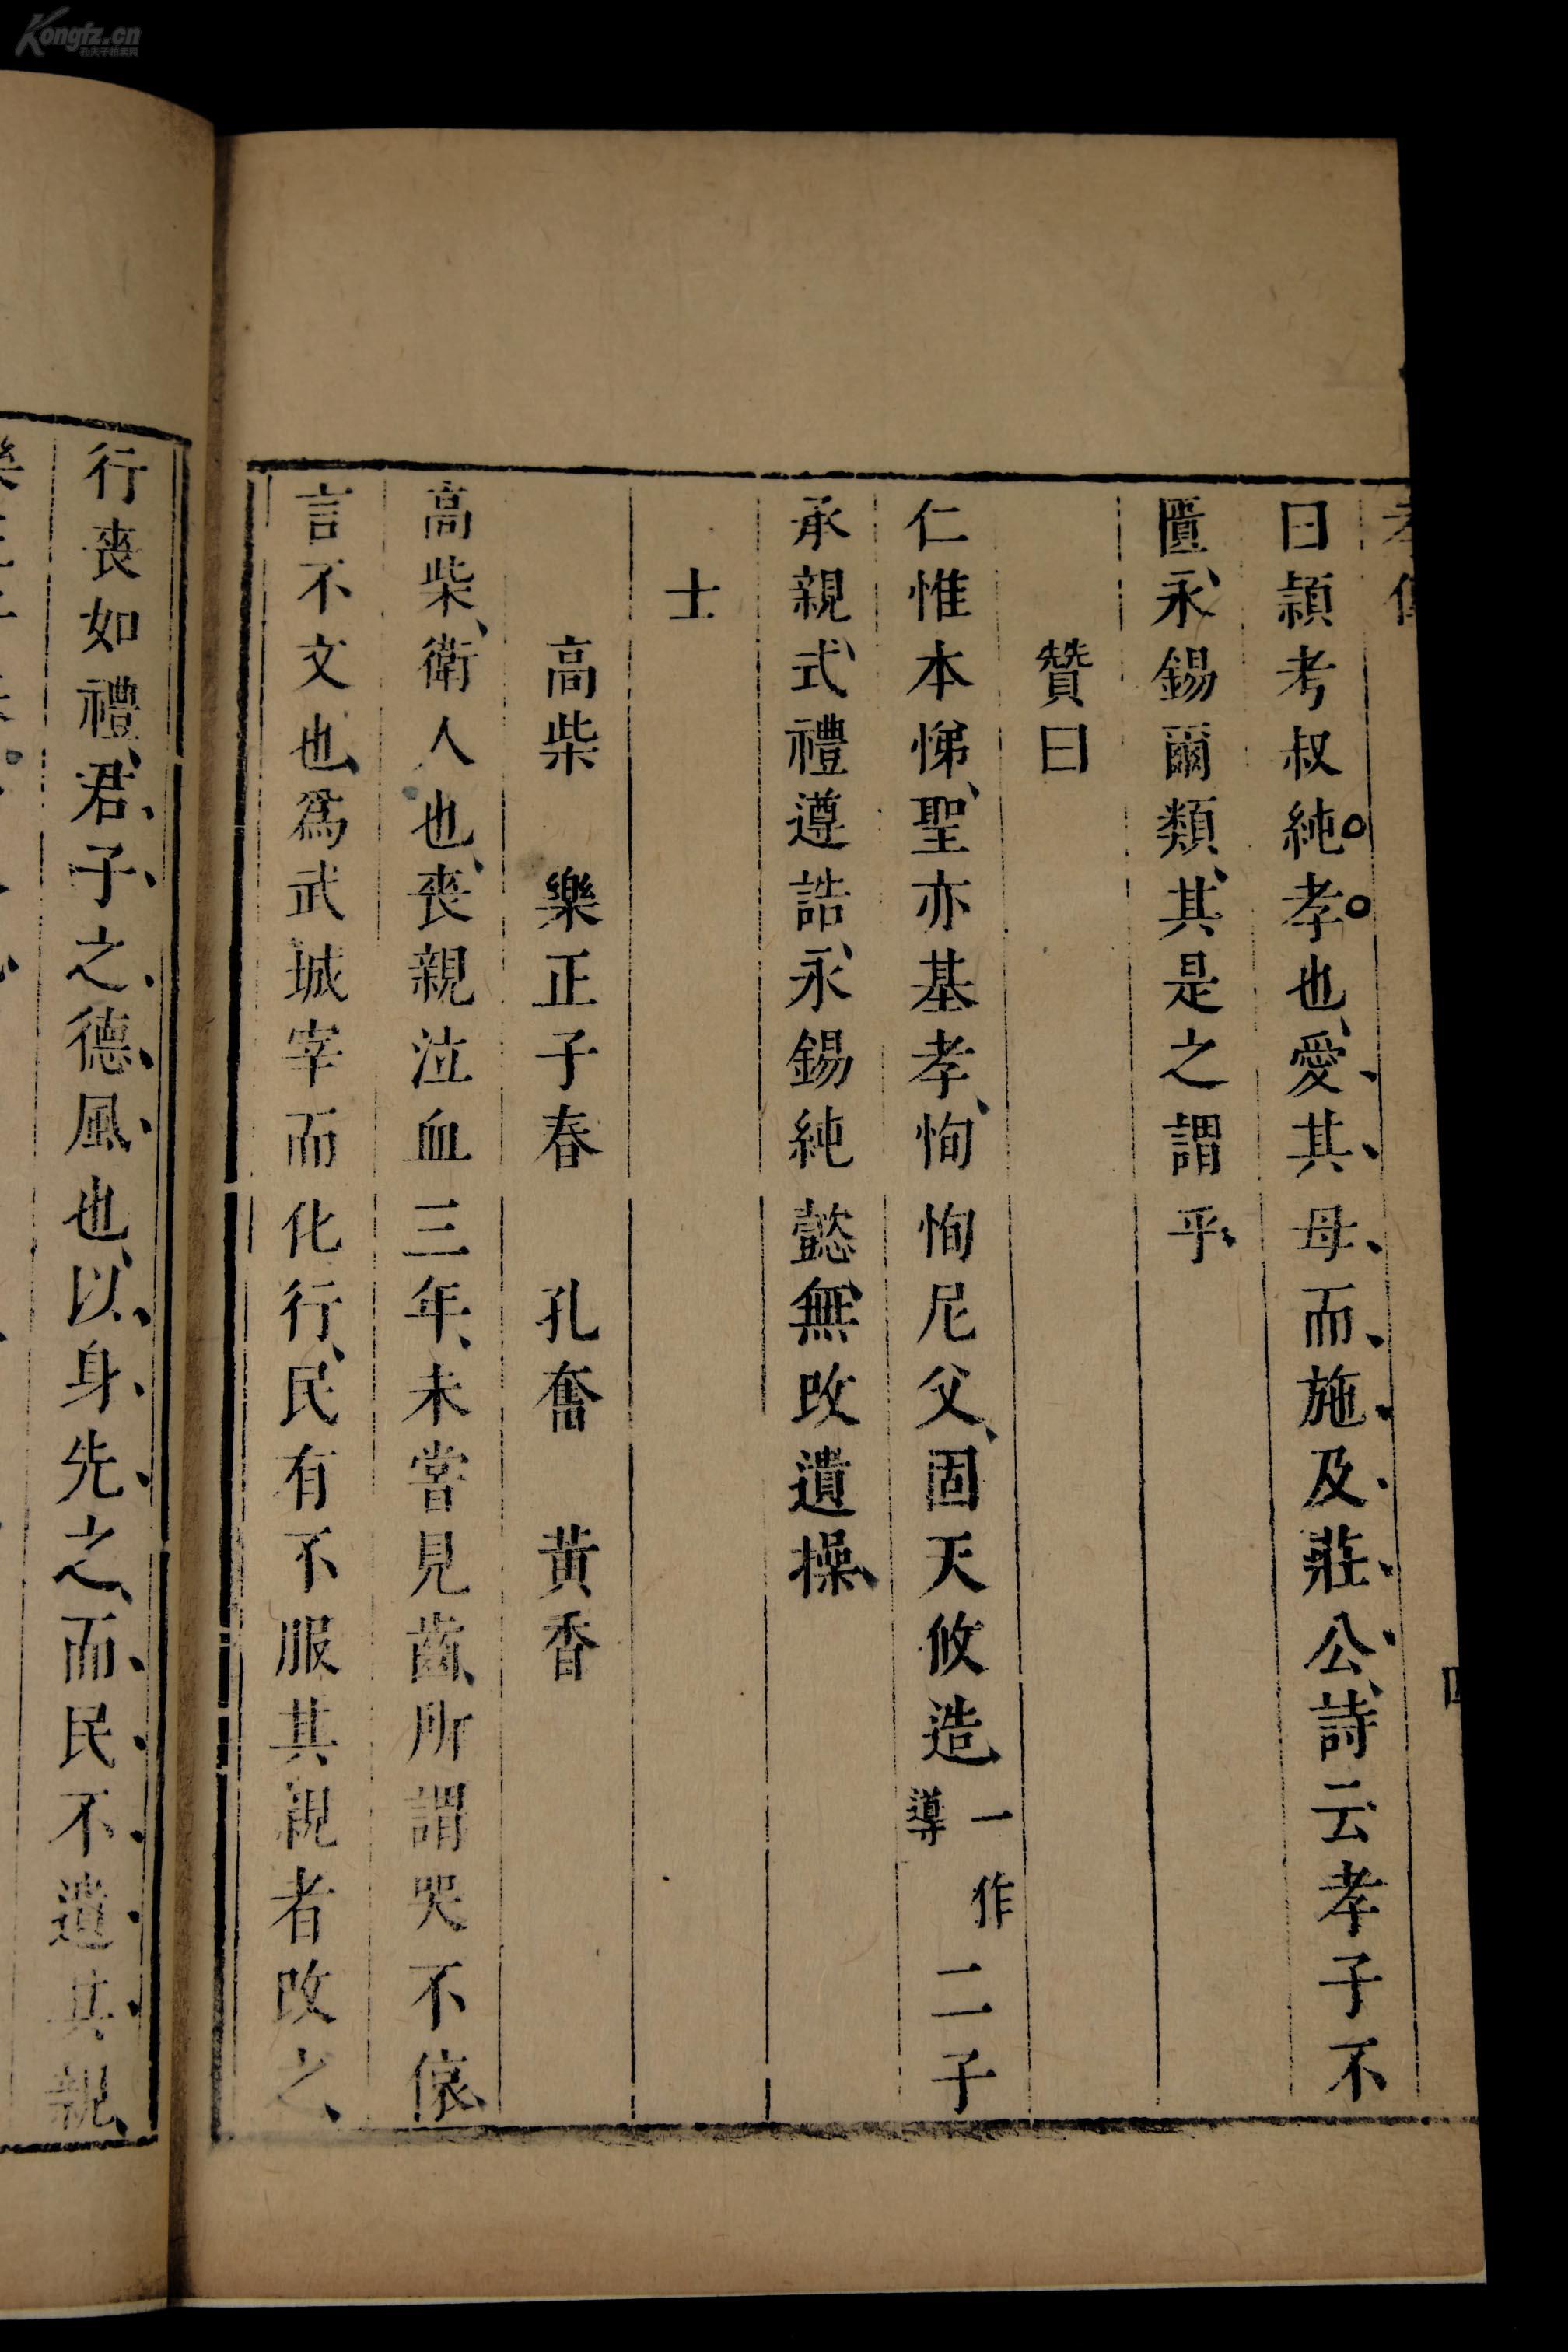 Kongfz.cn
孔夫子拍卖网
孝傳
四
曰穎考叔純孝也愛其母而施及莊公詩云孝子不
匱永錫爾類其是之謂乎
贊曰
仁惟本悌聖亦基孝恂恂尼父固天攸造一作導二子
承親式禮遵誥永錫純懿無改遺操
士
高柴 樂正子春 孔奮 黃香
高柴衛人也喪親泣血三年未嘗見齒所謂哭不偯
言不文也為武城宰而化行民有不服其親者改之
行喪如禮君子之德風也以身先之而民不遺其親